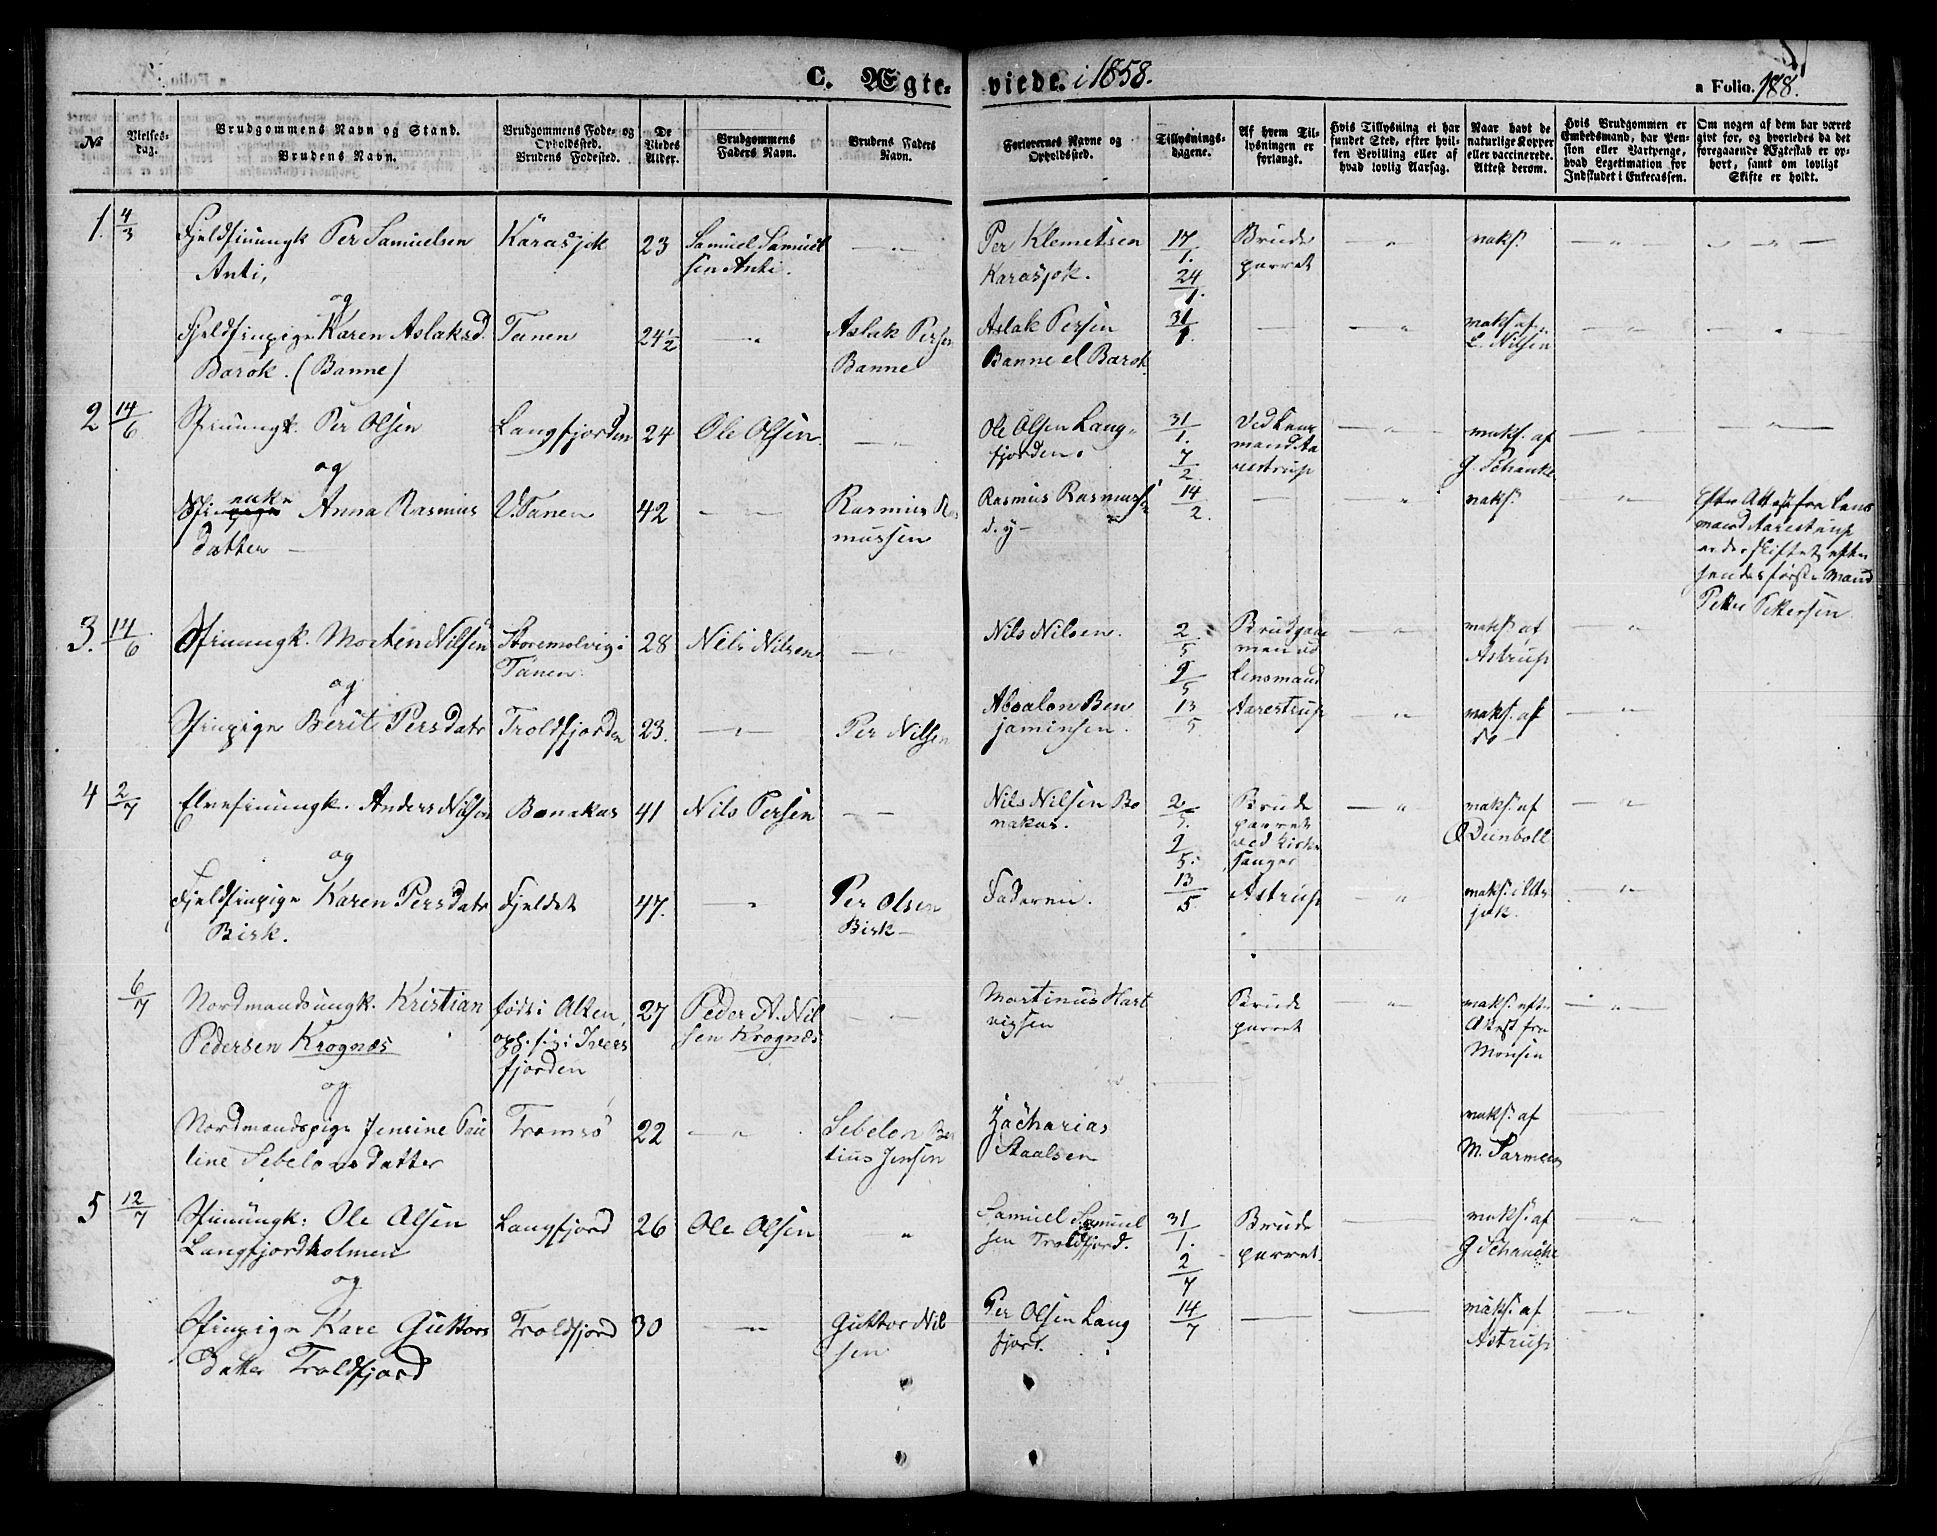 C. Ægte-
viede. i 1858.
a Folio. 188.
No
Vielses-
dag.
Brudgommens Navn og Stand.
Brudens Navn.
Brudgommens Føde- og
Opholdssted.
Brudens Fødested.
De
Viedes
Alder.
Brudgommens
Faders Navn.
Brudens Faders
Navn.
Forlovernes Navne og
Opholdssted.
Tillysnings-
dagene.
Af hvem Til-
lysningen er
forlangt.
Hvis Tillysning ei har
fundet Sted, efter hvil-
ken Bevilling eller af
hvad lovlig Aarsag.
Naar havt de
naturlige Kopper
eller vaccinerede.
Attest derom.
Hvis Brudgommen er
Embedsmand, har Pen-
sion eller Vartpenge,
hvad Legetimation for
Indskudet i Enkecassen.
Om nogen af dem har været
givt før, og hvorledes da det
foregaaende Ægteskab er op-
hørt, samt om lovligt
Skifte er holdt.
1. 4/3 Fjeldfinungk Per Samuelsen
Anti,
Karasjok
23
Samuel Samuel
sen Anti.
Per Klemetsen
Karasjok.
17/1.
24/1.
31/1.
Brude
parret
vaks.
og
Fjeldfinpige Karen Aslaksd.
Barok. (Banne)
Tanen
24½
Aslak Persen
Banne
Aslak Persen
Banne el Barok.
vaks. af
L. Nilsen
2 14/6 Sfinungk. Per Olsen
Langfjorden
24
Ole Olsen
Ole Olsen Lang-
fjorden.
31/1.
7/2.
14/2.
Ved Lens
mand Aa
restrup
vaks. af
G. Schanke
og
Sfin enke Anna Rasmus
datter
V. Tanen
42
Rasmus Ras
mussen
Rasmus Rasmuss
d.y
vaks.
Efter Attest fra Lens
mand Aarestrup
er der skiftet efter
hendes første Mand
Petter Pettersen
3. 14/6 Sfinungk. Morten Nilsen
Storemolvig i
Tanen
28
Nils Nilsen
Nils Nilsen.
2/5
9/5
13/5
Brudgom
men ved
Lensmand
Aarestrup
vaks. af
Astrup
og
Sfinpige Berit Persdatr
Troldfjorden
23.
Per Nilsen
Absalon Ben
jaminsen.
vaks. af
do
4 2/7 Elvefinungk. Anders Nilsen
Bonakas
41
Nils Persen
Nils Nilsen Bo
nakas.
2/5.
9/5.
13/5
Brude
parret
ved Kirke
sanger
Astrup
vaks. af
Deinboll
og
Fjeldfinpige Karen Persdatr
Birk.
Fjeldet
47.
Per Olsen
Birk
Faderen.
vaks. i Uts
jok.
6/7 Nordmandsungk. Kristian
Pedersen Krognæs
føds i Alten,
oph. sig i Ivers
fjorden
27
Peder A. Nil
sen Krognæs
Martinus Hart
vigsen
Brude
parret
vaks. efter
Attest fra
Monsen
og
Nordmandspige Jensine Pau
line Sebelonsdatter
Tromsø
22
Sebelon Ber
tius Jensen
Zacharias
Staalsen
vaks. af
M. Parmeen
5 12/7 Sfinungk: Ole Olsen
Langfjordholmen
Langfjord
26
Ole Olsen
Samuel Samuel
sen Troldfjord.
31/1.
2/7
14/7
Brude
parret.
vaks. af
G Schanche
og
Sfinpige Kare Guttors
datter Troldfjord
Troldfjord
30
Guttor Nil
sen
Per Olsen Lang
fjord.
vaks. af
Astrup